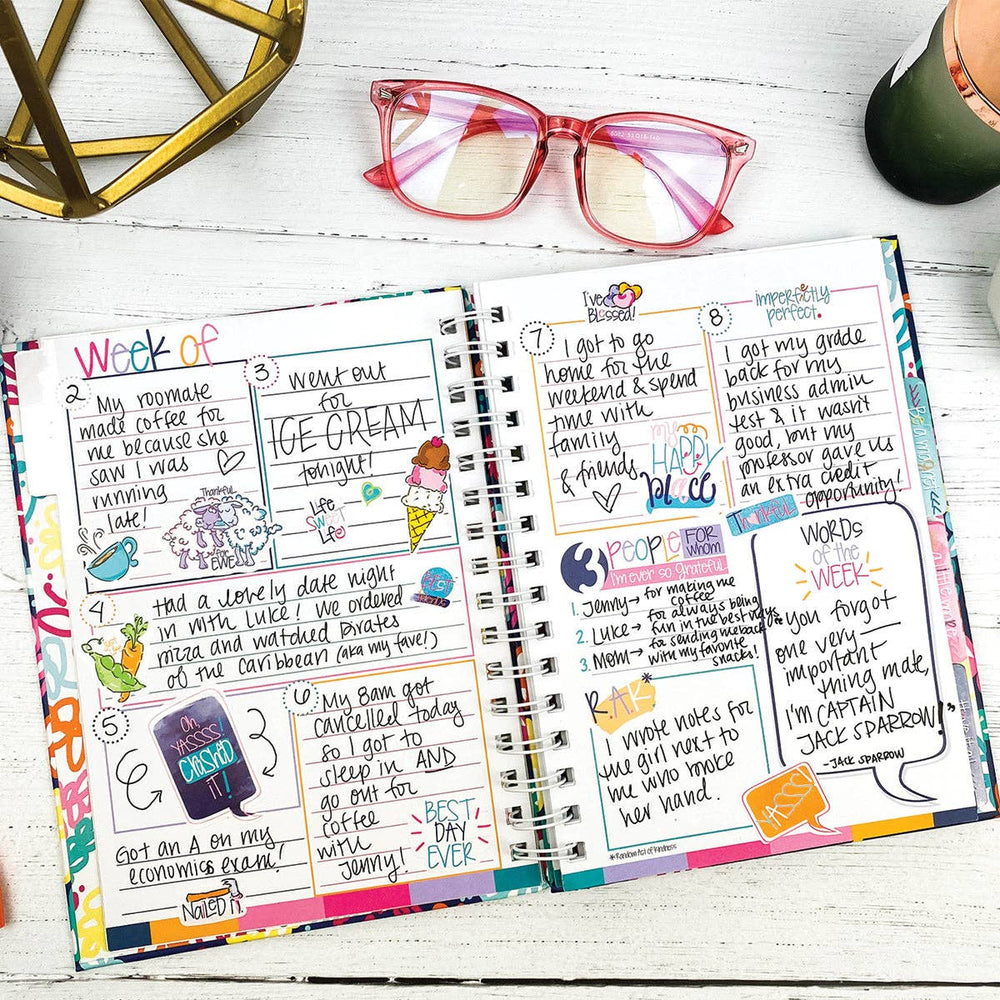 Week of
2
My roomate
made coffee for
me because she
saw I was
running
late!
Thankful
for
EWE
3
Went out
for
ICE CREAM
tonight!
Life
SWEET
Life
4
Had a lovely date night
in with Luke! We ordered
pizza and watched Pirates
of the Caribbean (aka my fave!)
5
Oh,
YASSSS!
CRUSHED
IT!
Got an A on my
economics exam!
NaiLED iT.
6
My 8am got
cancelled today
so I got to
sleep in AND
go out for
coffee
with
Jenny!
BEST
DAY
EVER
I've
BLessed!
7
I got to go
home for the
weekend & spend
time with
family
& friends
my
HAPPY
place
8
imperfectly
perfect.
I got my grade
back for my
business admin
test & it wasn't
good, but my
professor gave us
an extra credit
opportunity!
Thankful
3 PEOPLE FOR
WHOM
I'm ever so grateful
1. Jenny → for making me
coffee
2. Luke → for always being
fun in the best ways
3. Mom → for sending me back
with my favorite
snacks!
R.A.K*
I wrote notes for
the girl next to
me who broke
her hand.
*Random Act of Kindness
YASSS!
WORDS
OF the
WEEK
"you forgot
one very
important
thing mate,
I'M CAPTAIN
JACK SPARROW!"
-JACK SPARROW